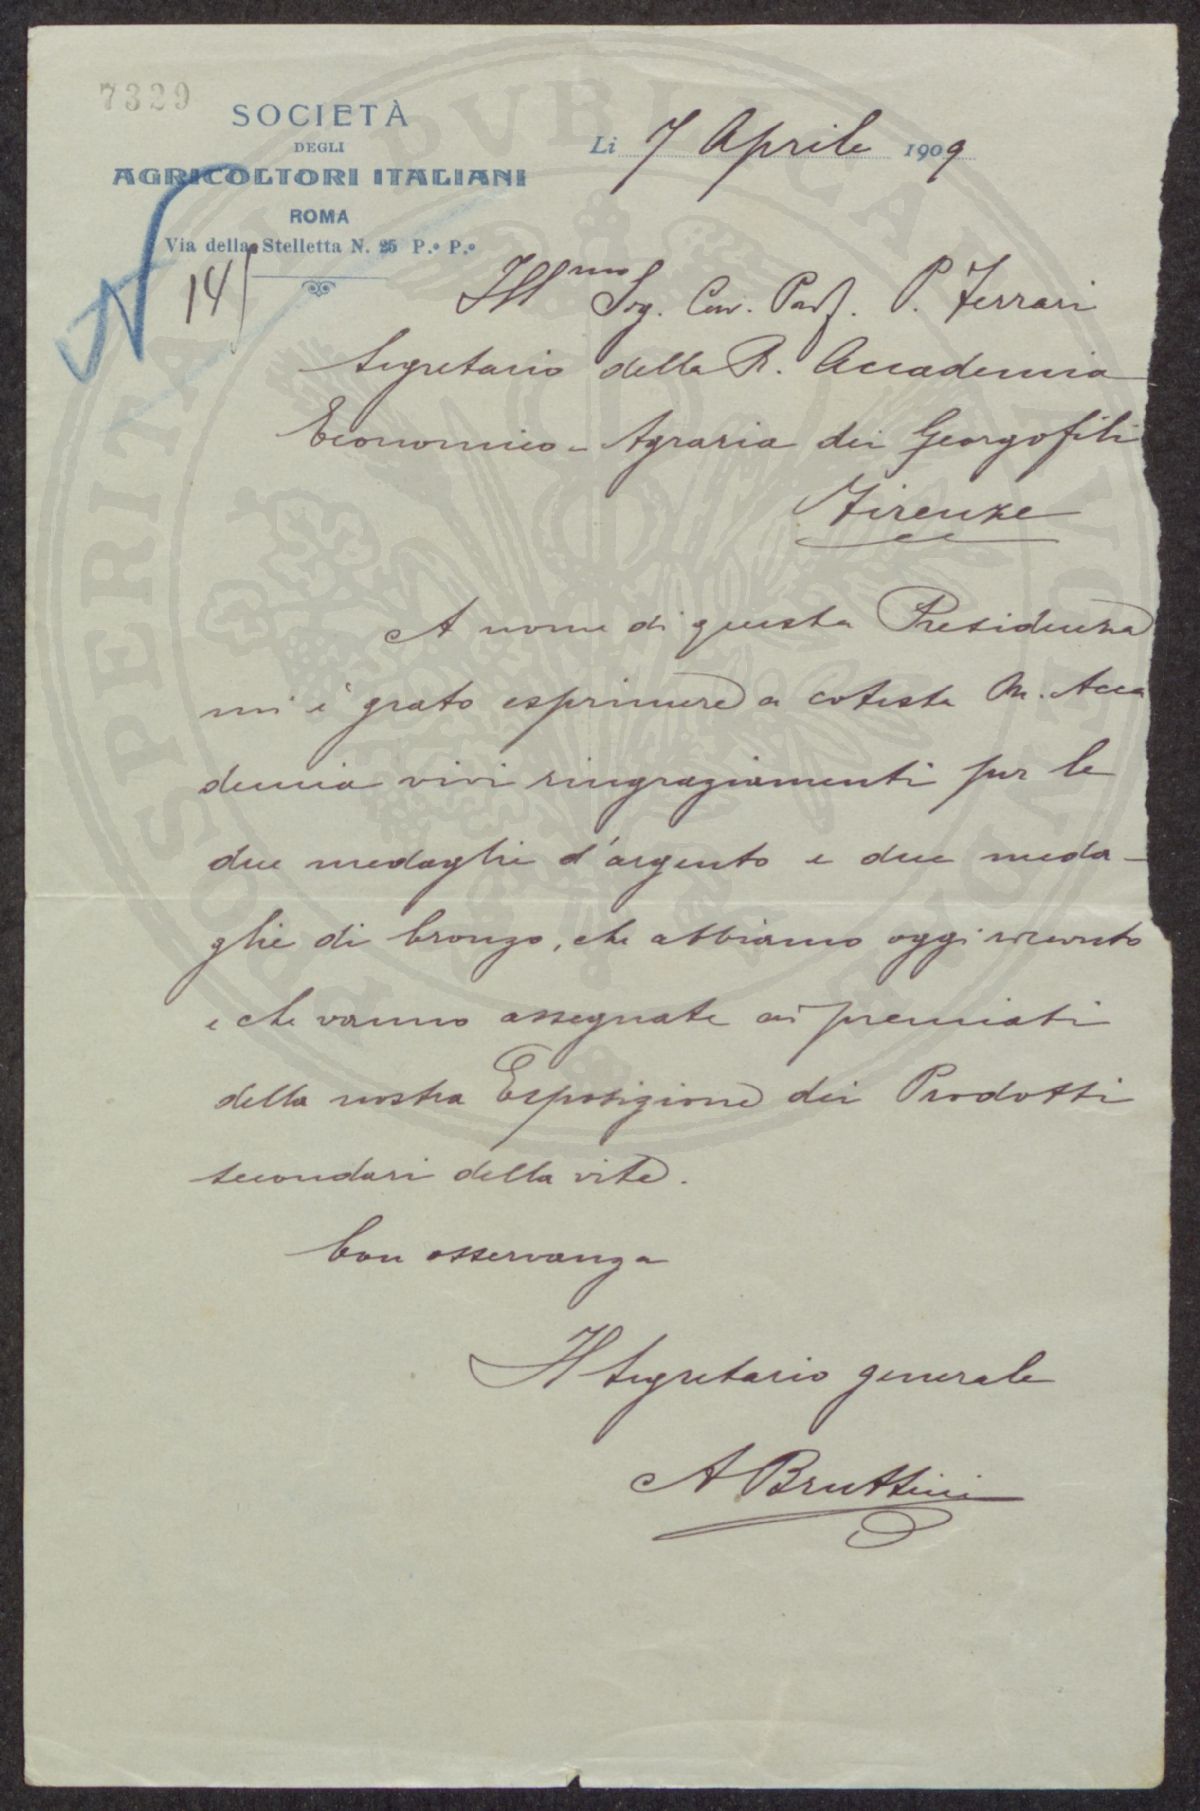 7329
SOCIETÀ
DEGLI
AGRICOLTORI ITALIANI
ROMA
Via della Stelletta N. 25 P.º P.º
14
Li 7 Aprile 1909
Illmo Sig. Cav. Prof. P. Ferrari
Segretario della R. Accademia
Economico-Agraria dei Georgofili
Firenze
A nome di questa Presidenza
mi è grato esprimere a cotesta On. Acca
demia vivi ringraziamenti per le
due medaglie d'argento e due meda-
glie di bronzo, che abbiamo oggi ricevuto
e che vanno assegnate ai premiati
della nostra Esposizione dei Prodotti
secondari della vite.
Con osservanza
Il Segretario generale
A Bruttini
PROSPERITATI PVBLICAE